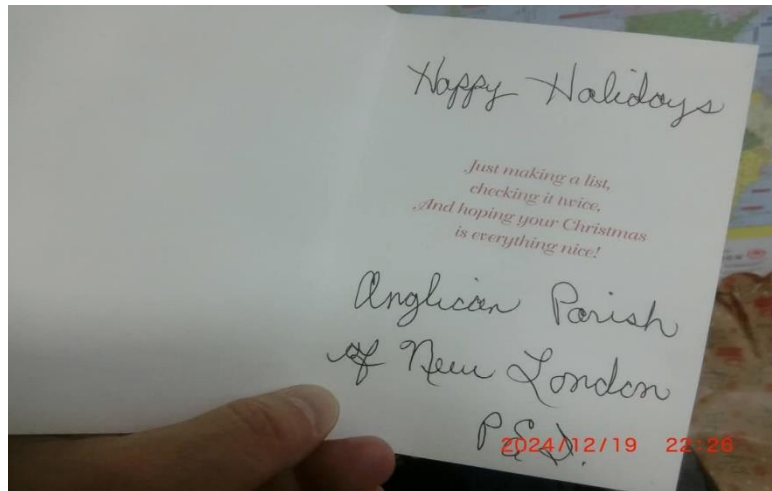 Happy Holidays
Just making a list,
checking it twice,
And hoping your Christmas
is everything nice!
Anglican Parish
of New London
P.E.I.
2024/12/19 22:26